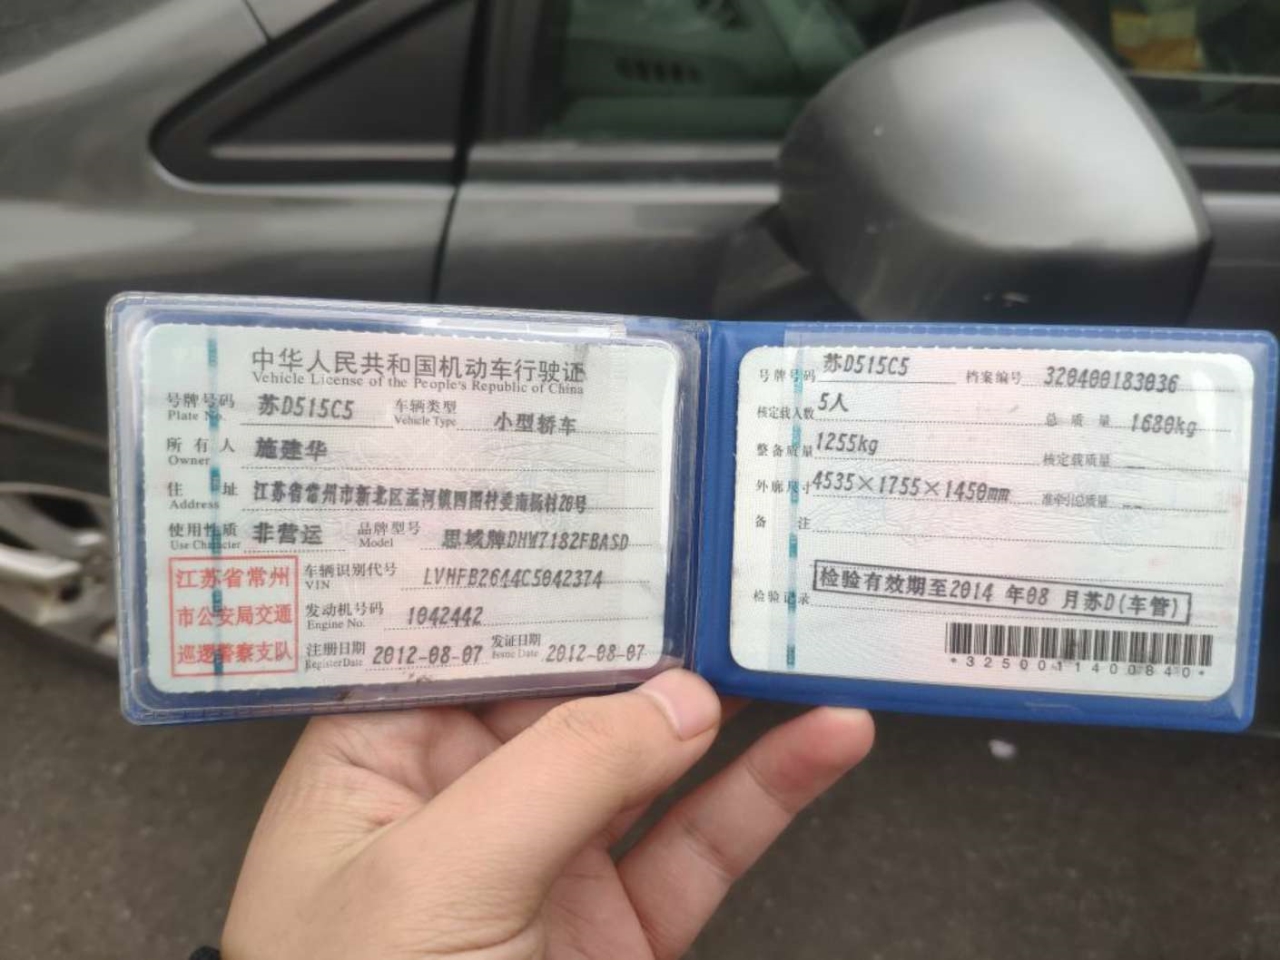 中华人民共和国机动车行驶证
Vehicle License of the People's Republic of China
号牌号码 苏D515C5 车辆类型 小型轿车
Plate No. Vehicle Type
所有人 施建华
Owner
住址 江苏省常州市新北区孟河镇四图村委南杨村26号
Address
使用性质 非营运 品牌型号 思域牌DHW7182FBASD
Use Character Model
江苏省常州
市公安局交通
巡逻警察支队
车辆识别代号 LVHFB2644C5042374
VIN
发动机号码 1042442
Engine No.
注册日期 2012-08-07 发证日期 2012-08-07
Register Date Issue Date
号牌号码 苏D515C5 档案编号 320400183036
核定载人数 5人 总质量 1680kg
整备质量 1255kg 核定载质量 --
外廓尺寸 4535×1755×1450mm 准牵引总质量 --
备注
检验记录 检验有效期至2014 年08 月苏D(车管)
*3250011400840*